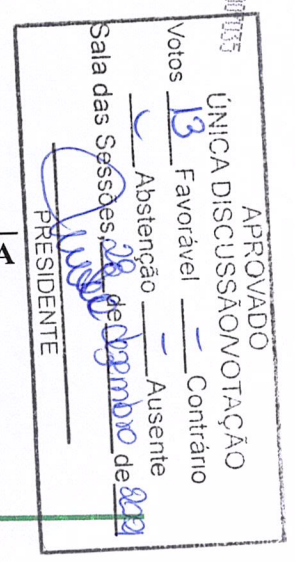 APROVADO
ÚNICA DISCUSSÃO/VOTAÇÃO
Votos 13 Favorável - Contrário
- Abstenção - Ausente
Sala das Sessões, 28 de dezembro de 2021
PRESIDENTE
A